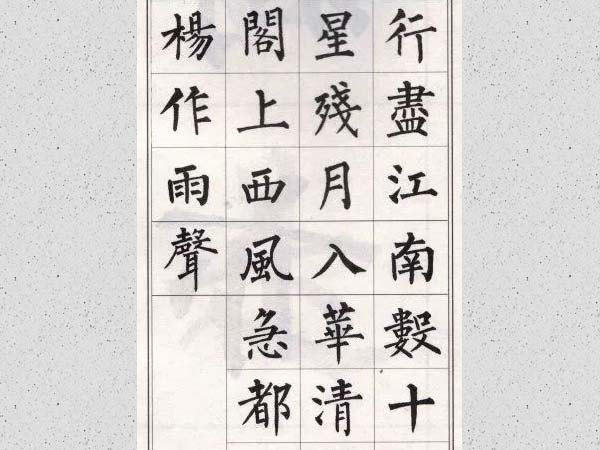 行盡江南數十
星殘月入華清
閣上西風急都
楊作雨聲